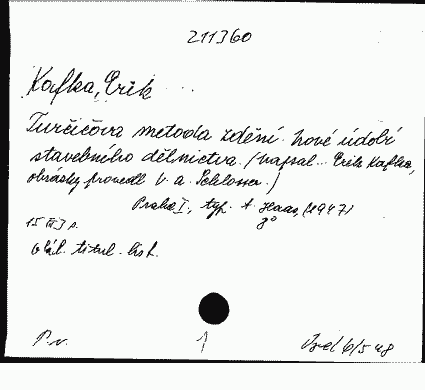 211360
Kafka, Erik
Turčičova metoda zdění. Nové údobí
stavebního dělnictva. (Napsal.. Erik Kafka,
obrázky provedl V. a. Schlosser.)
Praha I, typ. A. Haas, (1947)
8°
15 III] s.
obál. titul. list.
P.v. 1 6/5 48